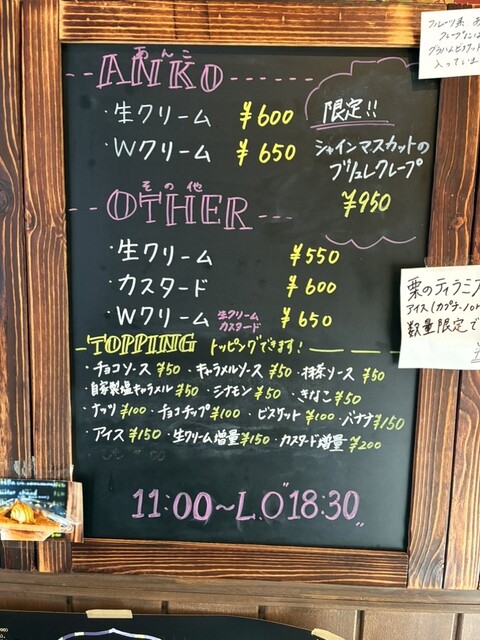 あんこ
ANKO
・生クリーム ¥600
・Wクリーム ¥650
限定!!
シャインマスカットの
ブリュレクレープ
¥950
その他
OTHER
・生クリーム ¥550
・カスタード ¥600
・Wクリーム 生クリーム カスタード ¥650
TOPPING トッピングできます!
・チョコソース ¥50 ・キャラメルソース ¥50 ・抹茶ソース ¥50
・自家製塩キャラメル ¥50 ・シナモン ¥50 ・きなこ ¥50
・ナッツ ¥100 ・チョコチップ ¥100 ・ビスケット ¥100 ・バナナ ¥150
・アイス ¥150 ・生クリーム増量 ¥150 ・カスタード増量 ¥200
11:00〜L.O"18:30"
フルーツ系
クレープには
グラハムビスケット
入ってい
栗のティラミ
アイス(カプチーノor
数量限定で